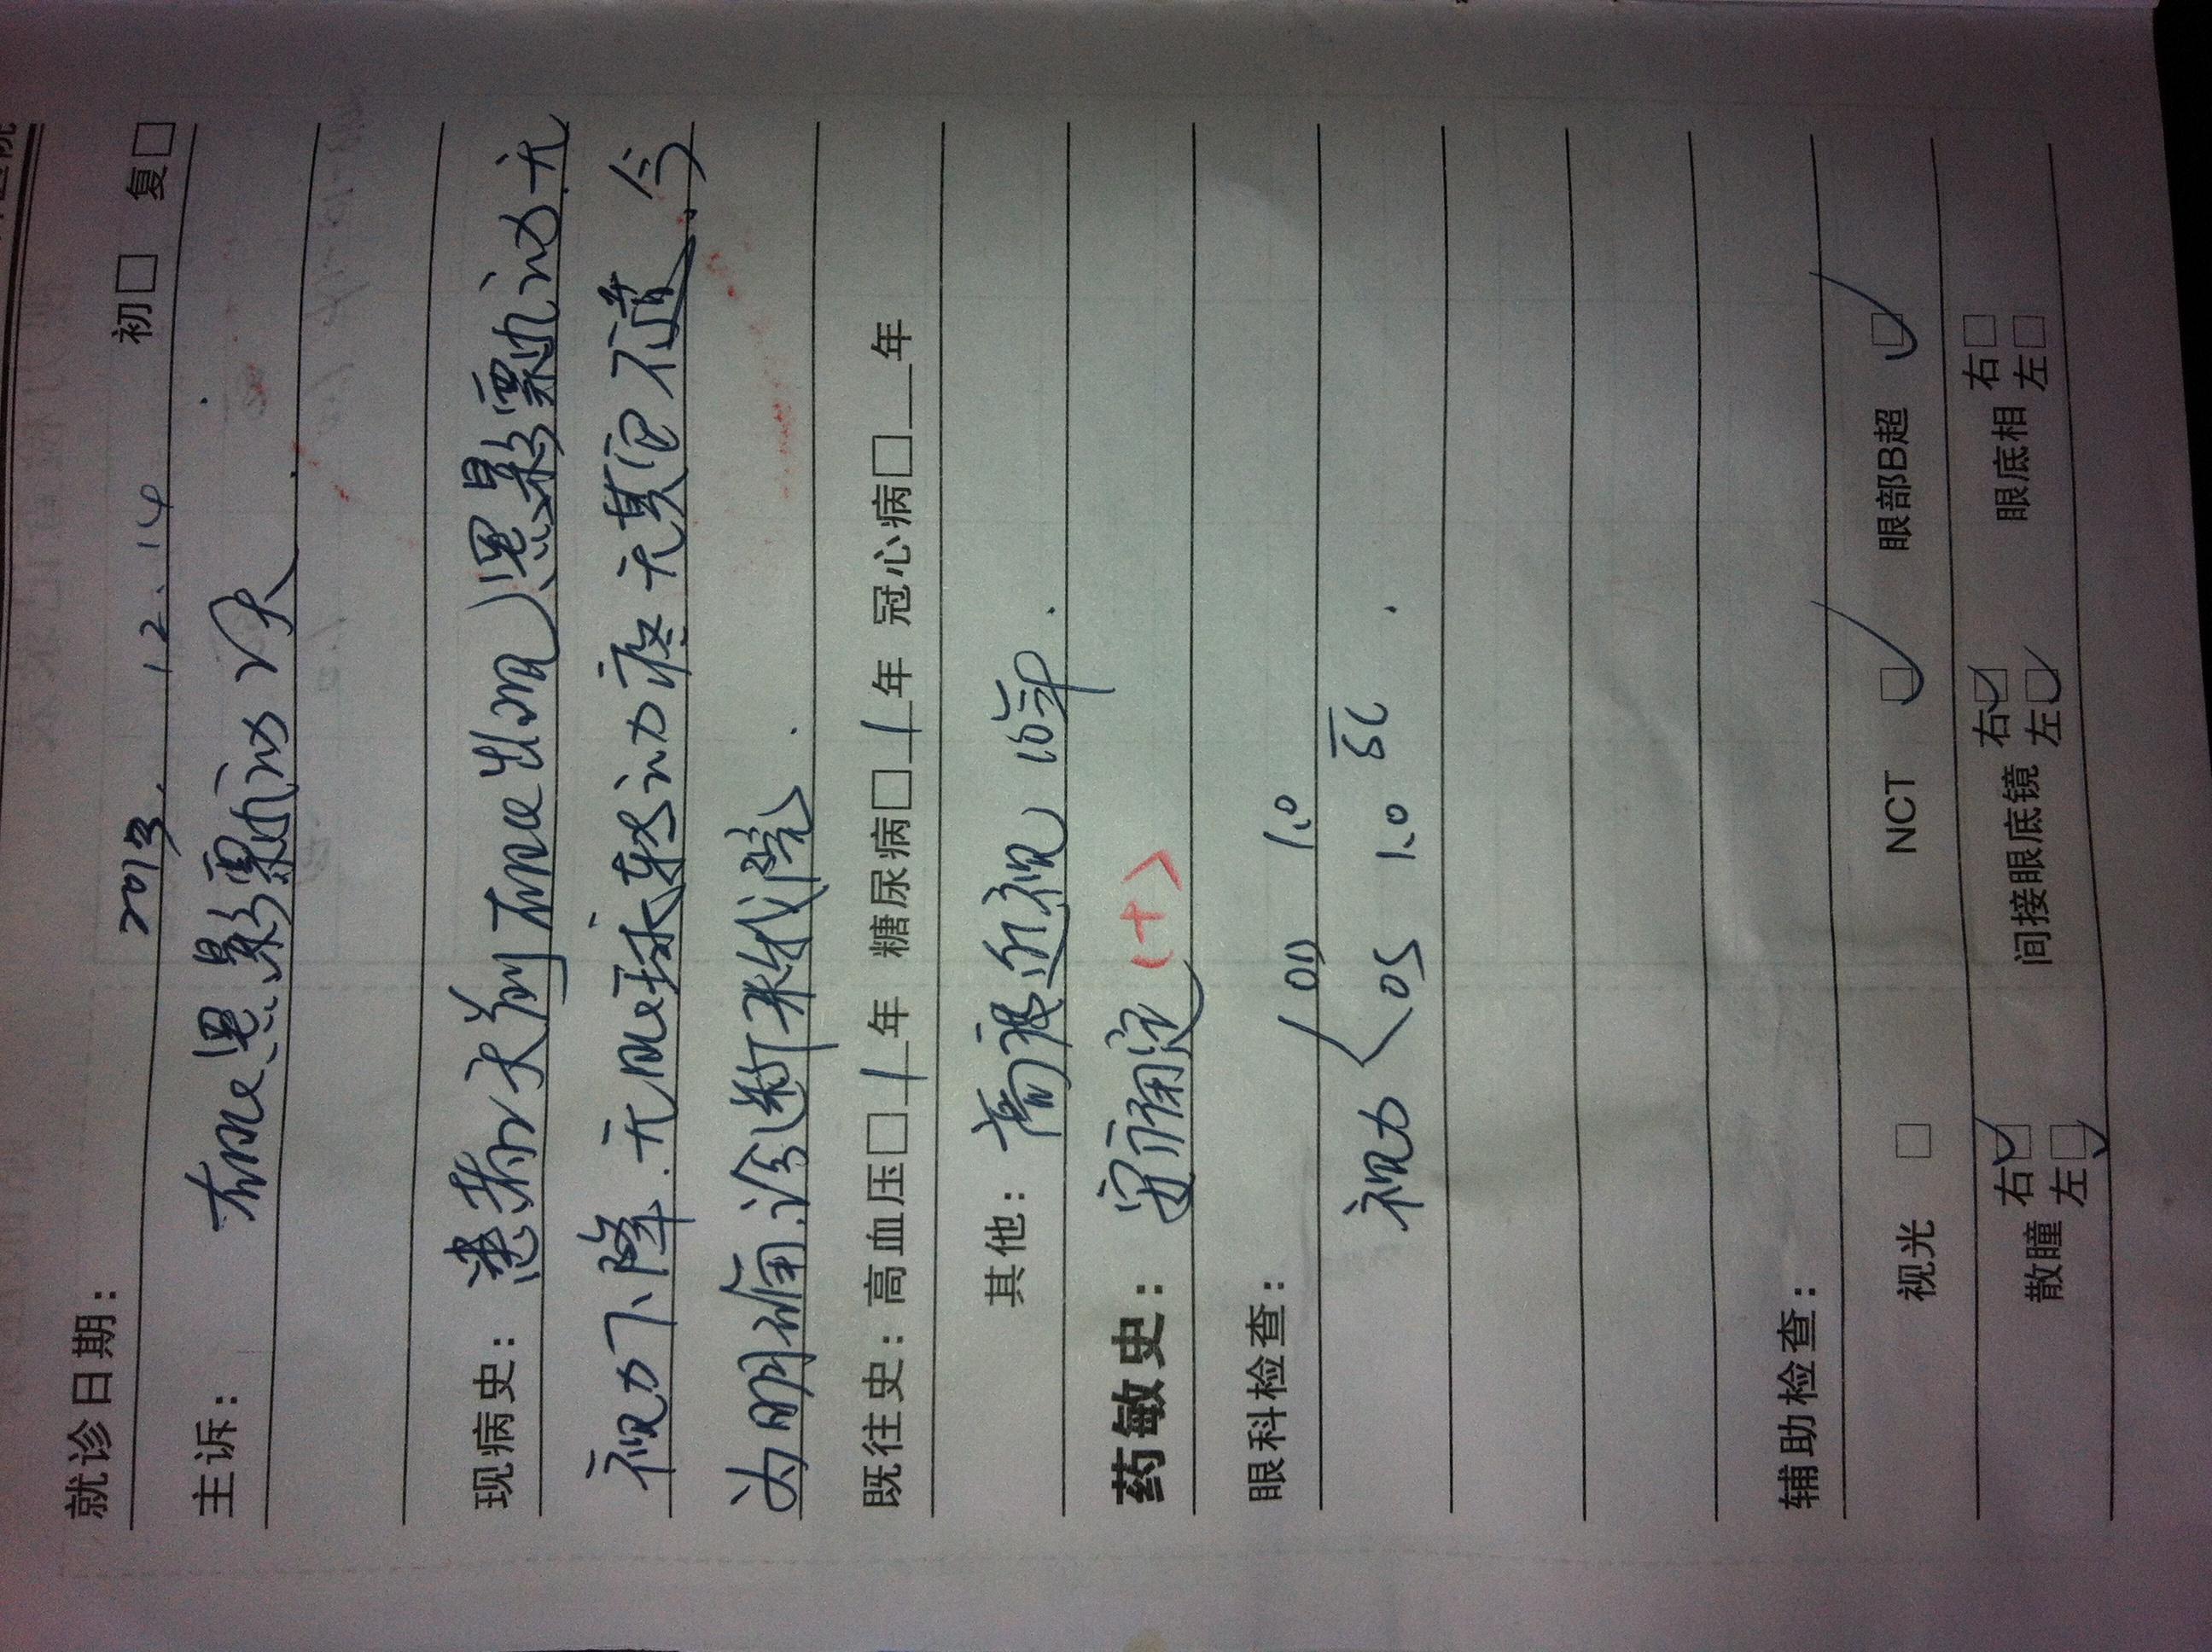 就诊日期： 2013.12.14 初□ 复□
主诉： 右眼黑影飘动4天.
现病史： 患者4天前右眼出现黑影飘动.无
视力下降.无眼球转动疼无其它不适.今
为明确诊断来我院.
既往史：高血压□/年 糖尿病□/年 冠心病□__年
其他： 高度近视10年.
药敏史： 安痛定(+)
眼科检查： OD 1.0
视力< OS 1.0
辅助检查：
视光 □ NCT ☑ 眼部B超 ☑
散瞳 右☑ 左☑ 间接眼底镜 右☑ 左☑ 眼底相 右□ 左□